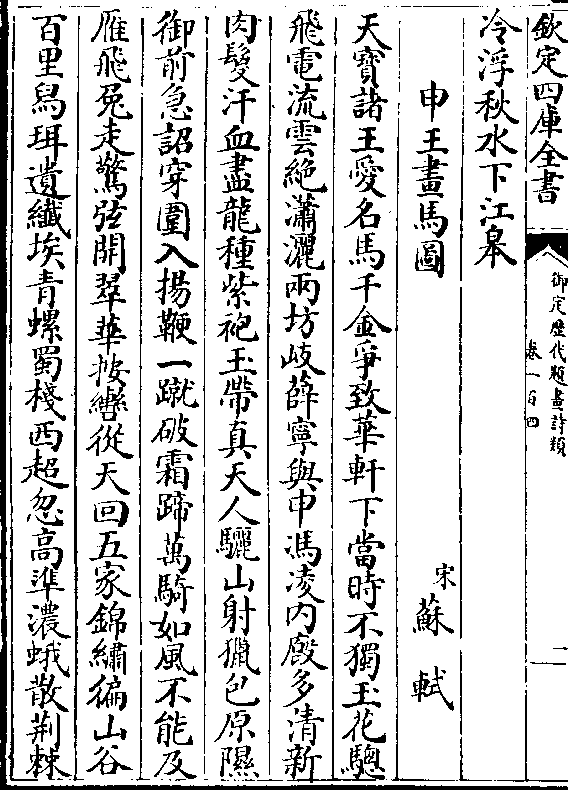 欽定四庫全書
御定歷代題畫詩類
卷一百四
二
冷浮秋水下江皋
申王畫馬圖
宋蘇軾
天寶諸王愛名馬千金爭致華軒下當時不獨玉花驄
飛電流雲絶瀟灑兩坊岐薛寧與申馮凌内廐多清新
肉鬉汗血盡龍種紫袍玉帶真天人驪山射獵包原隰
御前急詔穿圍入揚鞭一蹴破霜蹄萬騎如風不能及
雁飛兔走驚弦開翠華按轡從天回五家錦繡徧山谷
百里舄珥遺纎埃青螺蜀棧西超忽高準濃蛾散荆棘